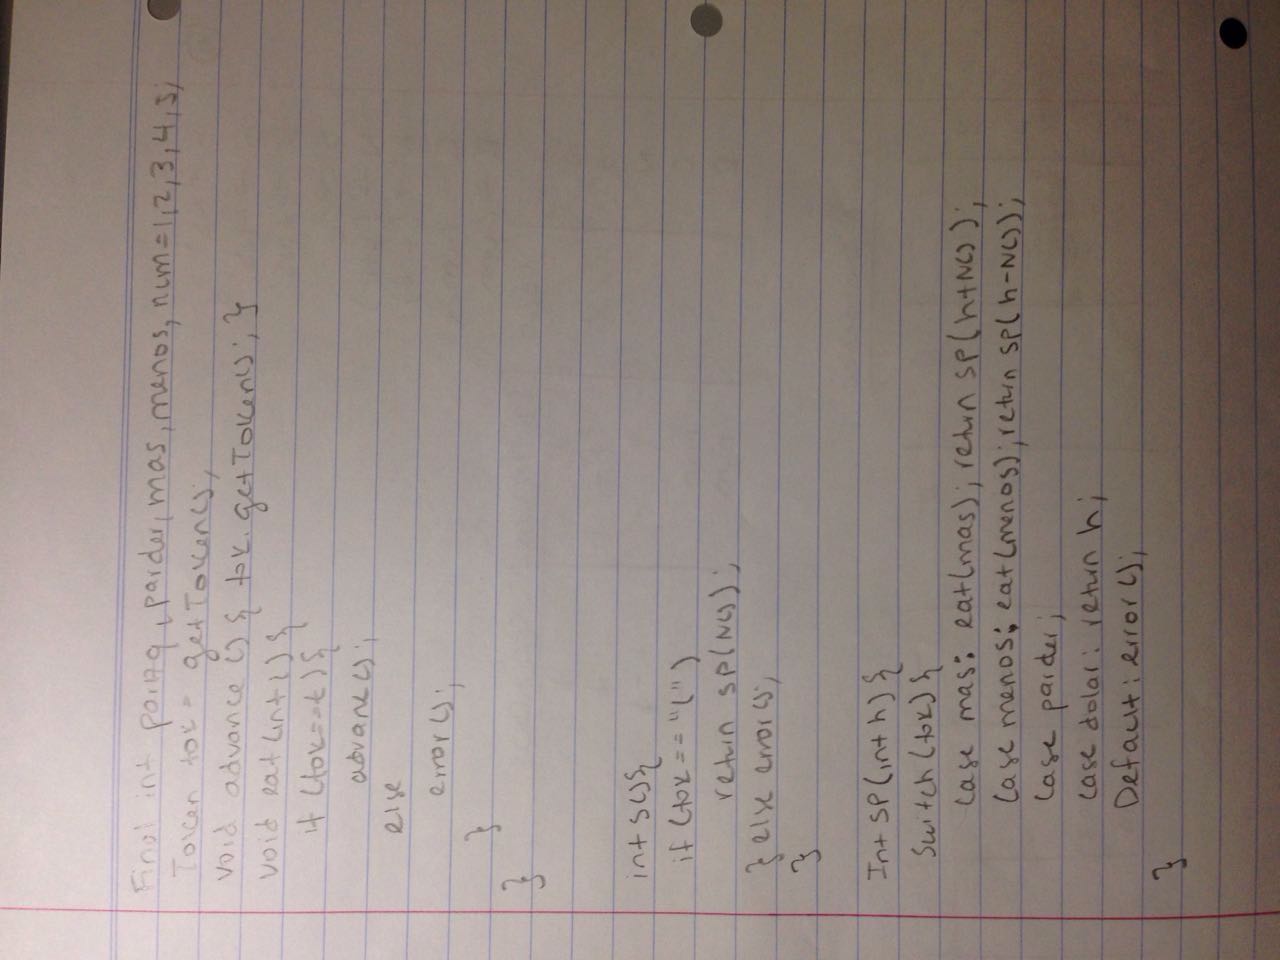 Final int parizq, parder, mas, menos, num=1,2,3,4,5;
Token tok= getToken();
void advance () { tok.getToken(); }
void eat(int t){
if (tok==t){
advance();
else
error();
}
}
int S(){
if (tok == "(")
return SP(N());
} else error();
}
Int SP(int h){
Switch(tok){
case mas: eat(mas); return SP(h+N());
case menos: eat(menos); return SP(h-N());
case parder;
case dolar: return h;
Default: error();
}